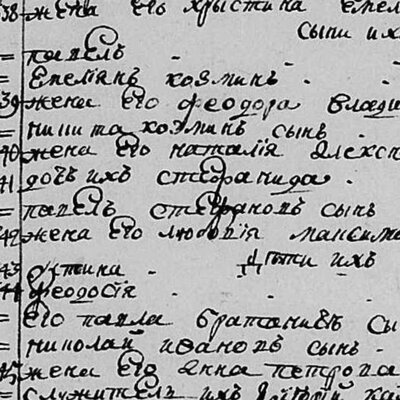 38 жена его христина емел
сыни их
= павелъ
= емелiянъ козминъ
39 жена его феодора влади
= никита козминъ сынъ
40 жена его наталiя алекс
41 дочъ ихъ стефанида
= павелъ стефановъ сынъ
42 жена его любовiя максимо
дѣти ихъ
43 устина
44 феодосiя
= его павла братаничъ сы
= николай ивановъ сынъ
45 жена его анна петрова
= служителъ ихъ